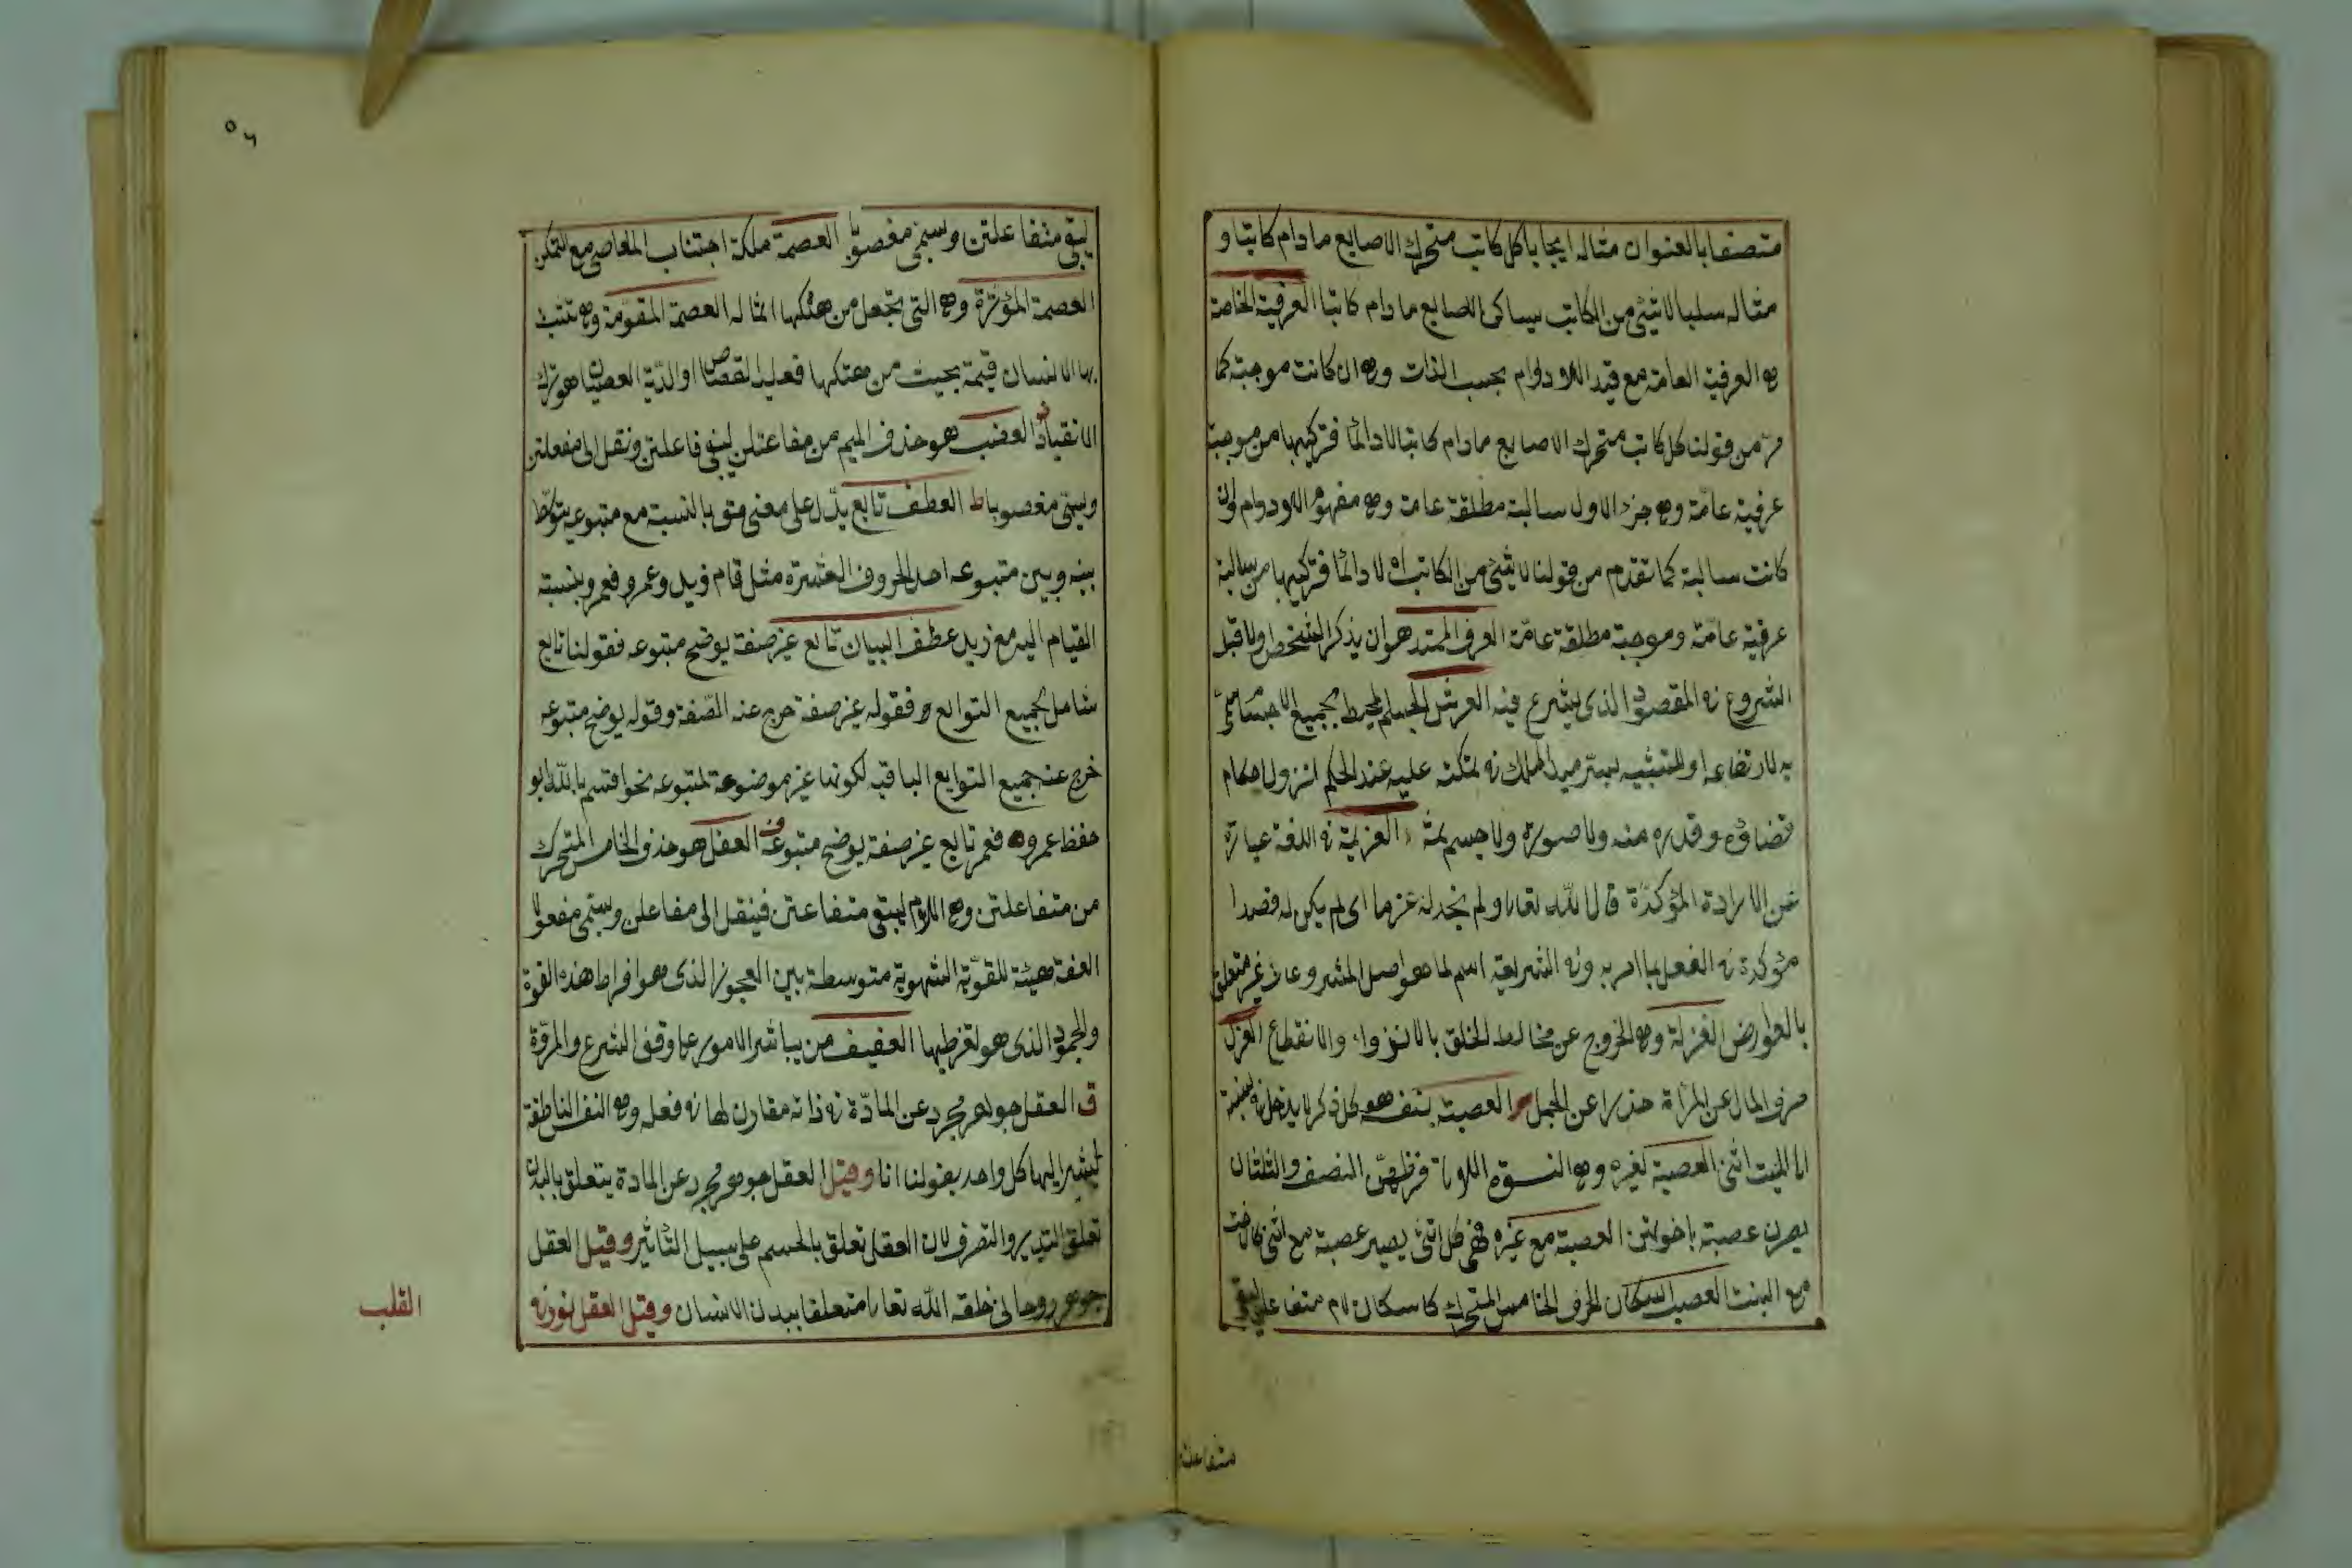 متصفا بالعنوان مثاله ايجابا كل كاتب متحرك الاصابع ما دام كاتبا و
مثاله سلبا لا شيئ من الكاتب بساكن الاصابع ما دام كاتبا العرفية الخاصة
هى العرفية العامة مع قيد اللادوام بحسب الذات وهى ان كانت موجبة كما
مر من قولنا كل كاتب متحرك الاصابع ما دام كاتبا لا دائما فتركيبها من موجبة
عرفية عامة وهى جزء الاول سالبة مطلقة عامة وهى مفهوم اللادوام وان
كانت سالبة كما تقدم من قولنا لا شيئ من الكاتب اه لا دائما فتركيبها من سالبة
عرفية عامة وموجبة مطلقة عامة العرف الممتد هو ان يذكر الشخص اولا قبل
الشروع فى المقصود الذى يشرع فيه العرش الجسم المحيط بجميع الاجسام سمى
به لارتفاعه او للتشبيه بسرير الملك فى تمكنه عليه عند الحكم لنزول احكام
قضاؤه وقدره منه ولا صورة ولا جسم ثمة العزيمة فى اللغة عبارة
عن الارادة المؤكدة قال الله تعالى ولم نجد له عزما اى لم يكن له قصدا
مؤكدة فى الفعل بما امر به وفى الشريعة اسم لما هو اصل المشروعات غير متعلق
بالعوارض العزلة وهى الخروج عن مخالطة الخلق بالانزواء والانقطاع العزل
صرف المال عن المرأة حذرا عن الحمل العصبة بنفسه هو كل ذكر لا يدخل فى نسبته
الى الميت انثى العصبة لغيره وهى النسوة اللاتى فرضهن النصف والثلثان
يصرن عصبة باخوتهن العصبة مع غيره فهى كل انثى يصير عصبة مع انثى كالاخت
مع البنت العصب اسكان الحرف الخامس المتحرك كاسكان لام متفاعلتن ليبقى
متفاعلتن
٥٦
ليبقى متفاعلتن ويسمى مغصوبا العصمة ملكة اجتناب المعاصى مع التمكن
العصمة المؤثرة وهى التى تجعل من هتكها اثما له العصمة المقومة وهى تثبت
بها الانسان قيمة بحيث من هتكها فعليه القصاص او الدية العصيان هو ترك
الانقياد العضب هو حذف الميم من مفاعلتن ليبقى فاعلتن ونقل الى مفعلتن
ويسمى مغصوبا ط العطف تابع يدل على معنى متق بالنسبة مع متبوعه يتوسط
بينه وبين متبوعه احد الحروف العشرة مثل قام زيد وعمرو فعمرو بنسبة
القيام اليه مع زيد عطف البيان تابع غير صفة يوضح متبوعه فقولنا تابع
شامل لجميع التوابع فقوله غير صفة خرج عنه الصفة وقوله يوضح متبوعه
خرج عنه جميع التوابع الباقية لكونها غير موضوعة لمتبوعه نحو اقسم بالله ابو
حفظ عمرو فعمر تابع غير صفة يوضح متبوعه ف العقل هو حذف الخامس المتحرك
من متفاعلتن وهى اللام ليبقى متفاعتن فينقل الى مفاعلن ويسمى مفعولا
العفة هيئة للقوة الشهوية متوسطة بين العجوز الذى هو افراط هذه القوة
والجمود الذى هو تفريطها العفيف من يباشر الامور على وفق الشرع والمروة
ق العقل جوهر مجرد عن المادة فى ذاته مقارن لها فى فعله وهى النفس الناطقة
يشير اليها كل واحد بقولنا انا وقيل العقل جوهر مجرد عن المادة يتعلق بالبدن
تعلق التدبير والتصرف لان العقل تعلق بالجسم على سبيل التأثير وقيل العقل
جوهر روحانى خلقه الله تعالى متعلقا ببدن الانسان وقيل العقل نور فى
القلب